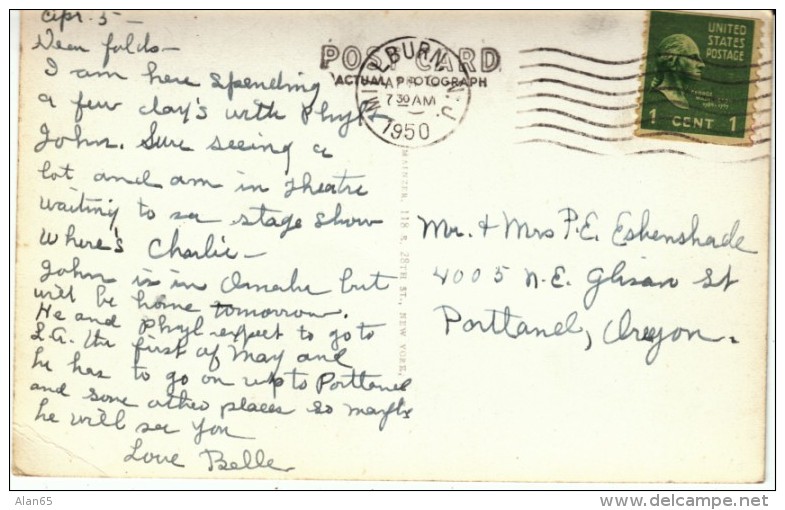 Apr. 5 -
Dear folks -
I am here spending
a few day's with Phyl &
John. Sure seeing a
lot and am in Theatre
waiting to see stage show
Where's Charlie -
John is in Omaha but
will be home tomorrow.
He and Phyl expect to go to
L.A. the first of May and
he has to go on up to Portland
and some other places so maybe
he will see you
Love Belle
POST CARD
ACTUAL PHOTOGRAPH
MILLBURN N.J.
7 30 AM
1950
UNITED
STATES
POSTAGE
1 CENT 1
MAENZER, 118 E. 28TH ST., NEW YORK,
Mr. & Mrs P. E. Eshenshade
4005 N.E. Glisan St
Portland, Oregon.
Alan65
http://www.delcampe.net